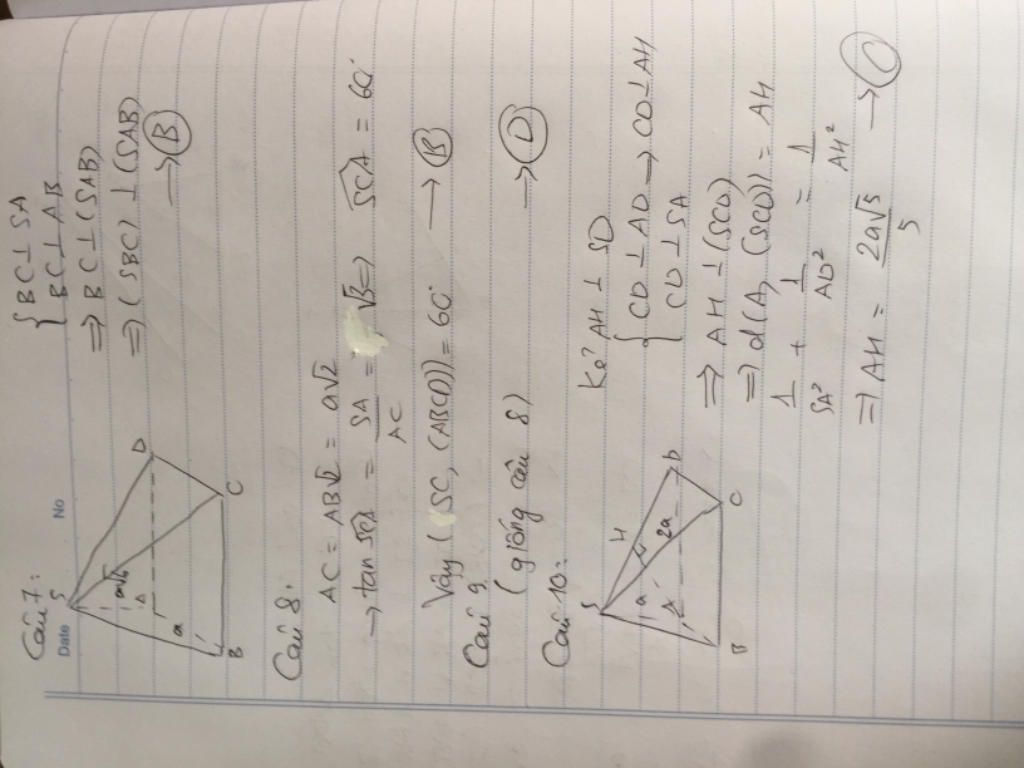 Date No
Câu 7:
S
a√6
A
a
B
C
D
{ BC ⊥ SA
{ BC ⊥ AB
⇒ BC ⊥ (SAB)
⇒ (SBC) ⊥ (SAB)
→ B
Câu 8:
AC = AB√2 = a√2
→ tan SCA = SA/AC = √3 ⇒ SCA = 60°
Vậy (SC, (ABCD)) = 60° → B
Câu 9
(giống câu 8) → D
Câu 10:
S
H
a
2a
A
B
C
D
Kẻ AH ⊥ SD
{ CD ⊥ AD → CD ⊥ AH
{ CD ⊥ SA
⇒ AH ⊥ (SCD)
⇒ d(A, (SCD)) = AH
1/SA² + 1/AD² = 1/AH²
⇒ AH = 2a√5/5 →